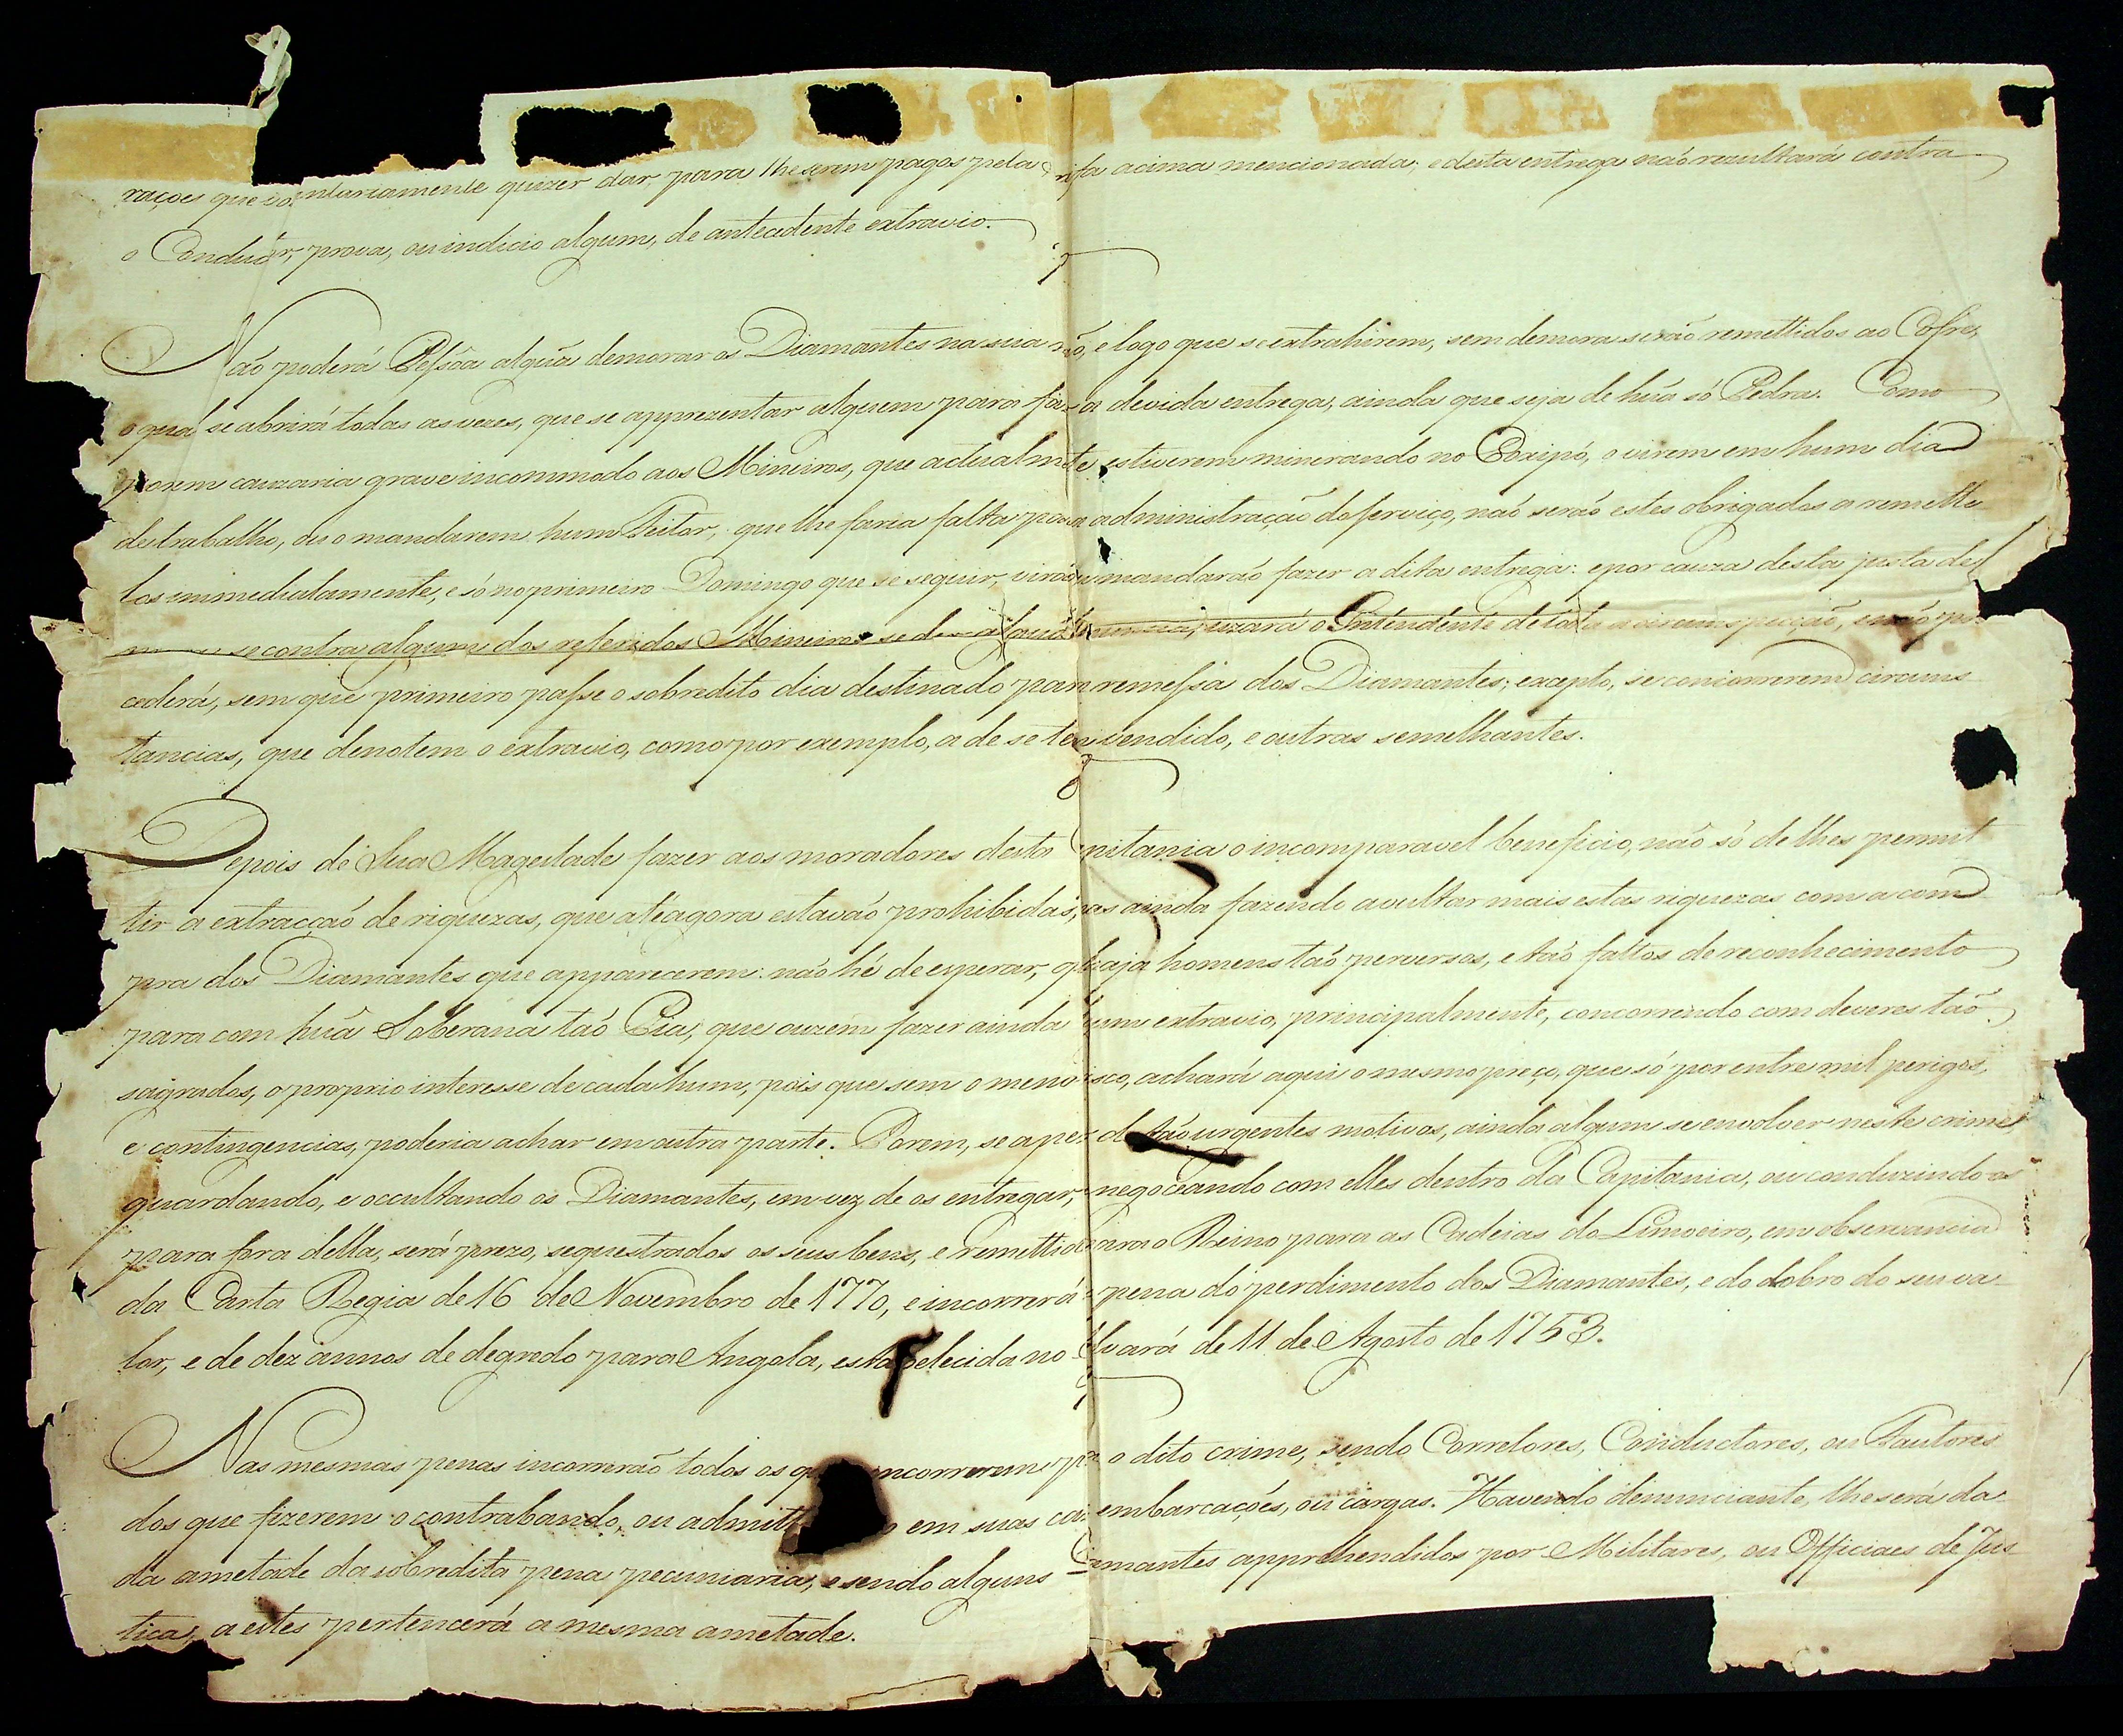 rações que voluntariamente quizer dar, para lhe serem pagos pela rifa acima mencionada; e desta entrega não rezultará contra
o Conductor, prova, ou indicio algum, de antecedente extravio.
Não poderá Pessôa algũa demorar os Diamantes na sua mão, e logo que se extrahirem, sem demora serão remettidos ao Cofre,
o qual se abrirá todas as vezes, que se apprezentar alguem para faz a devida entrega, ainda que seja de hũa só Pedra. Como
porem cauzaria grave incommodo aos Mineiros, que actualmte estiverem minerando no Coxipó, o virem em hum dia
de trabalho, ou o mandarem hum Feitor, que lhe faria falta para a administração do serviço, não serão estes obrigados a remette
los immediatamente, e só no primeiro Domingo que se seguir, virão mandarão fazer a dita entrega: e por cauza desta justa del
se contra algum dos referidos Mineiros se der uzará o Intendente de toda a circunspecção, e não pro
cederá, sem que primeiro passe o sobredito dia destinado para remessa dos Diamantes; excepto, se concorrerem circuns
tancias, que denotem o extravio, como por exemplo, a de se ter vendido, e outras semelhantes.
Depois de Sua Magestade fazer aos moradores desta Capitania o incomparavel beneficio, não só de lhes permit
tir a extracção de riquezas, que até agora estavão prohibidas, mas ainda fazendo avultar mais estas riquezas com a com
pra dos Diamantes que apparecerem: não hé de esperar, q haja homens tão perversos, e tão faltos de reconhecimento
para com hũa Soberana tão Pia, que ouzem fazer ainda hum extravio, principalmente, concorrendo com deveres tão
sagrados, o proprio interesse de cada hum; pois que sem o menor risco, achará aqui o mesmo preço, que só por entre mil perigos,
e contingencias, poderia achar em outra parte. Porem, se apezar de tão urgentes motivos, ainda algum se envolver neste crime,
guardando, e occultando os Diamantes, em vez de os entregar, negociando com elles dentro da Capitania, ou conduzindo os
para fora della, será prezo, sequestrados os seus bens, e remettido para o Reino para as Cadeias do Limoeiro, em observancia
da Carta Regia de 16 de Novembro de 1770, e incorrerá a pena do perdimento dos Diamantes, e do dobro do seu va
lor, e de dez annos de degredo para Angola, estabelecida no Alvará de 11 de Agosto de 1753.
Nas mesmas penas incorrerão todos os que concorrerem pa o dito crime, sendo Corretores, Conductores, ou Fautores
dos que fizerem o contrabando, ou admitt em suas embarcações, ou cargas. Havendo denunciante, lhe será da
da ametade da sobredita pena pecuniaria, e sendo alguns Diamantes apprehendidos por Militares, ou Officiaes de Jus
tica, a estes pertencerá a mesma ametade.